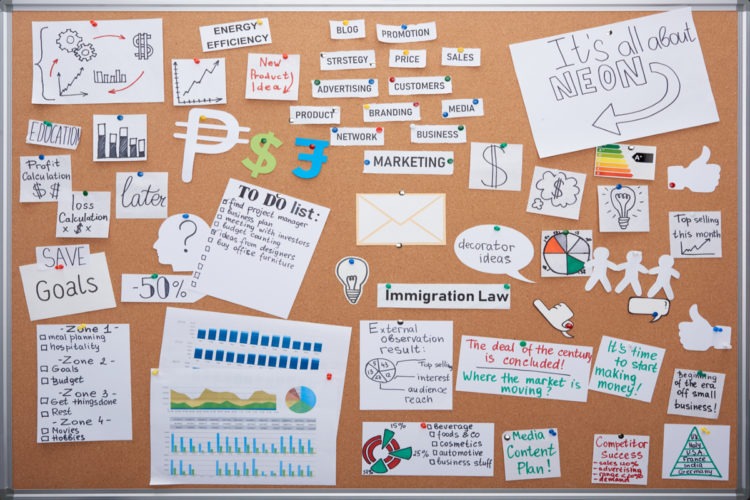 ENERGY
EFFICIENCY
BLOG
PROMOTION
STRSTEGY
PRICE
SALES
ADVERTISING
CUSTOMERS
PRODUCT
BRANDING
MEDIA
NETWORK
BUSINESS
MARKETING
New
Product
Idea
It's all about
NEON
$
A+
EDUCATION
Profit
Calculation
$ $
loss
Calculation
× $ ×
later
?
TO DO list:
find project manager
business plan
meeting with investors
budget counting
ideas from designers
buy office furniture
SAVE
Goals
-50%
decorator
ideas
Top selling
this month
Immigration Law
- Zone 1 -
meal planning
hospitality
- Zone 2 -
Goals
Budget
- Zone 3 -
Get thingsdone
Rest
- Zone 4 -
Movies
Hobbies
External
observation
result:
Top selling
interest
audience
reach
The deal of the century
is concluded!
Where the market is
moving?
It's time
to start
making
money!
Beginning
of the era
off small
business!
15%
25%
Beverage
foods & co
cosmetics
automotive
business stuff
Media
Content
Plan!
Competitor
Success
- sales 100%
- advertising
- demand
UK
Italy
USA
France
India
Germany